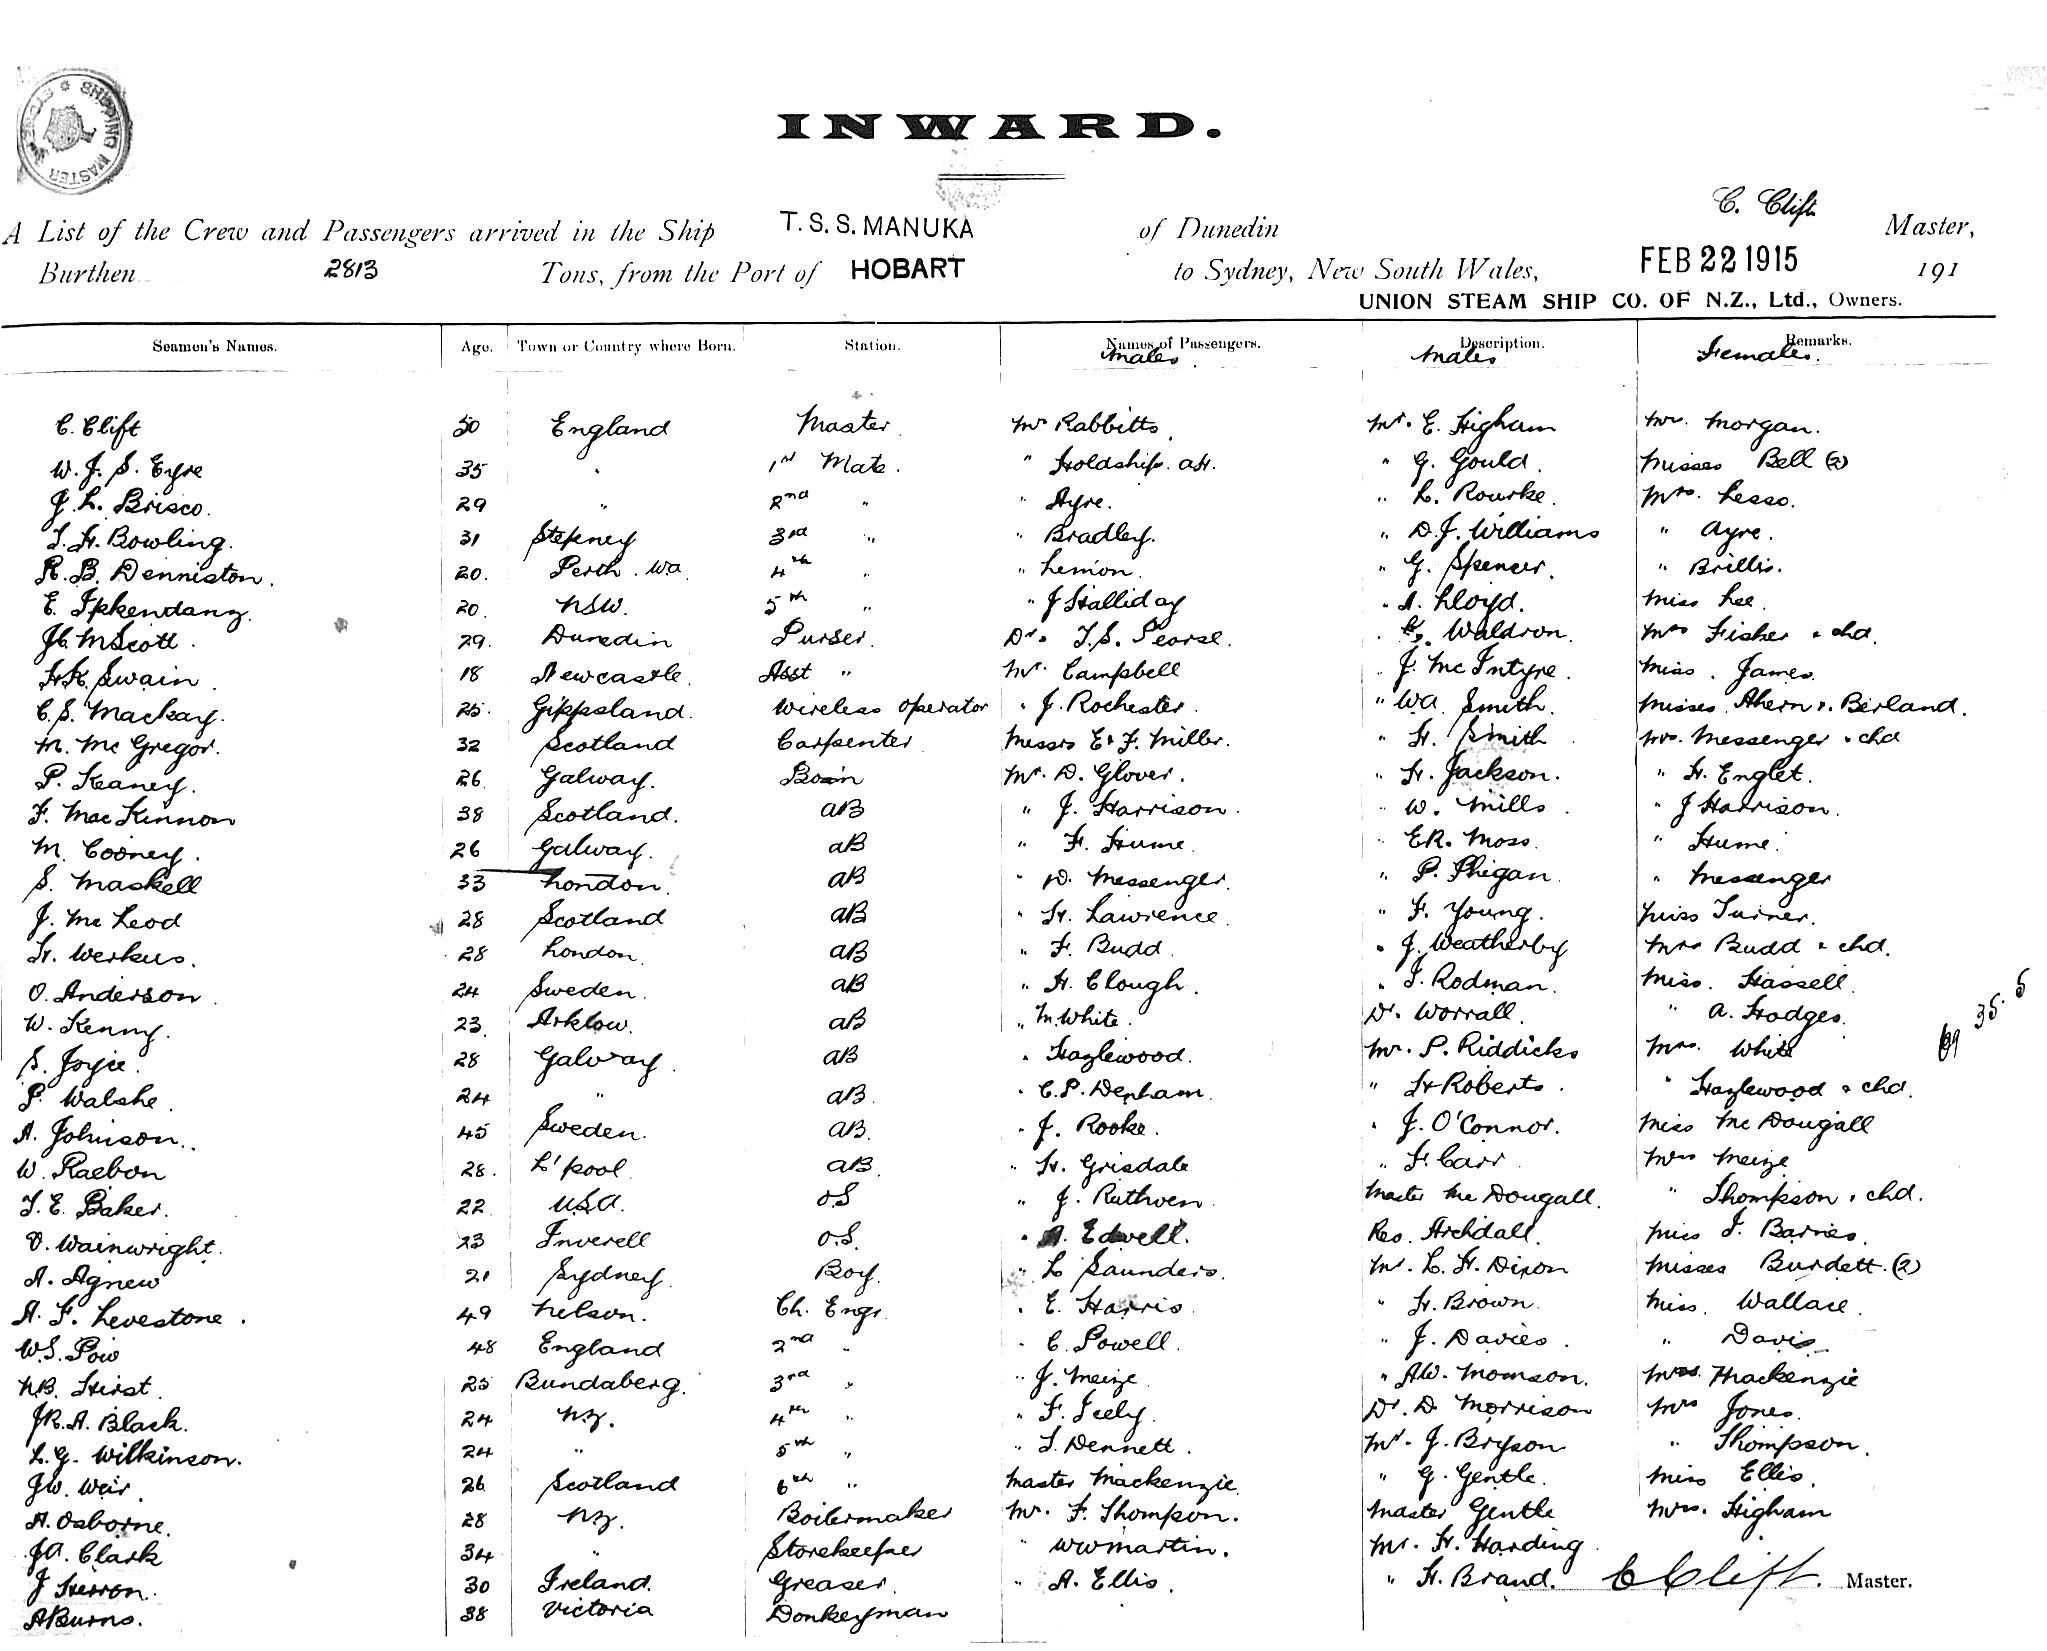 SHIPPING MASTER
INWARD.
C. Clift
A List of the Crew and Passengers arrived in the Ship T.S.S. MANUKA of Dunedin Master,
Burthen 2813 Tons, from the Port of HOBART to Sydney, New South Wales, FEB 22 1915 191
UNION STEAM SHIP CO. OF N.Z., Ltd., Owners.
Seamen's Names. Age. Town or Country where Born. Station. Names of Passengers. Description. Remarks.
Males Males Females.
C. Clift 50 England Master Mr Rabbitts. Mr. E. Higham Mr. Morgan.
W. J. S. Eyre 35 " 1st Mate. " Holdship. " G. Gould. Misses Bell (2)
J. L. Brisco. 29 " 2nd " " Ayre. " L. Rourke. Mrs. Lesso.
T. H. Bowling. 31 Stepney 3rd " " Bradley. " D. J. Williams " Ayre.
R. B. Denniston. 20. Perth. WA 4th " " Lemon. " G. Spencer. " Brillis.
E. 20. NSW. 5th " " J Halliday " A. Lloyd. Miss Lee.
McScott. 29. Dunedin Purser. Dr. T. S. Pearse. " Waldron. Mrs Fisher & chd.
H.R. Swain. 18 Newcastle. Asst " Mr. Campbell " J. McIntyre. Miss. James.
C. S. Mackay. 25. Gippsland. Wireless Operator " J. Rochester. " WA Smith. Misses Ahern & Berland.
M. McGregor. 32 Scotland Carpenter Messrs E & F. Miller. " H. Smith Mrs. Messenger & chd
P. Keaney. 26 Galway. Bosn Mr. D. Glover. " H. Jackson. " H. Englet.
F. MacKinnon 38 Scotland. AB " J. Harrison. " W. Mills. " J Harrison.
M. Cooney. 26 Galway. AB " F. Hume. " E.R. Moss. " Hume.
S. Maskell 33 London. AB " D. Messenger. " P. Phigan. " Messenger
J. McLeod 28 Scotland AB " H. Lawrence. " F. Young. Miss Turner.
H. Werkus. 28 London. AB " F. Budd. " J. Weatherby Mrs Budd & chd.
O. Anderson 24 Sweden. AB " H. Clough. " T. Rodman. Miss. Hassell.
W. Kenny. 23. Arklow. AB " M. White. Dr. Worrall. " A. Hodges.
35. 5
S. Joyce. 28 Galway AB " Hazlewood. Mr. P. Riddicks Mrs. White
P. Walshe. 24 " AB " C. P. Denham. " H Roberts. " Hazlewood & chd.
A. Johnson. 45 Sweden. AB. " J. Rooke. " J. O'Connor. Miss McDougall
W. Raebon 28. L'pool AB " H. Grisdale " F. Carr Mrs Meize
T. E. Baker. 22 USA. OS " J. Ruthven. Master McDougall. " Thompson & chd.
V. Wainwright. 23 Inverell O.S. " A. Edwell. Rev. Archdall. Miss T. Barnes.
A. Agnew 21 Sydney. Boy. " L Saunders. Mr. L. H. Dixon Misses Burdett. (2)
A. F. Levestone. 49 Nelson. Ch. Engr " E. Harris. " H. Brown. Miss. Wallace.
W.S. Pow 48 England 2nd " " C. Powell. " J. Davies. " Davis
N.B. Hirst. 25 Bundaberg. 3rd " " J. Meize " A.W. Momson. Mrs. Mackenzie
J.R.A. Black. 24 NZ. 4th " " F. Feely. Dr. D Morrison Mrs Jones.
L. G. Wilkinson. 24 " 5th " " T. Dennett. Mr. J. Bryson " Thompson.
J.W. Weir. 26 Scotland 6th " Master Mackenzie. " G. Gentle. Miss Ellis.
A. Osborne. 28 NZ. Boilermaker Mr. F. Thompson. Master Gentle Mrs. Higham
J.A. Clark 34 " Storekeeper " W W Martin. Mr. H. Harding
J Herron. 30 Ireland. Greaser. " A. Ellis. " H. Brand. C Clift. Master.
A Burns. 38 Victoria Donkeyman